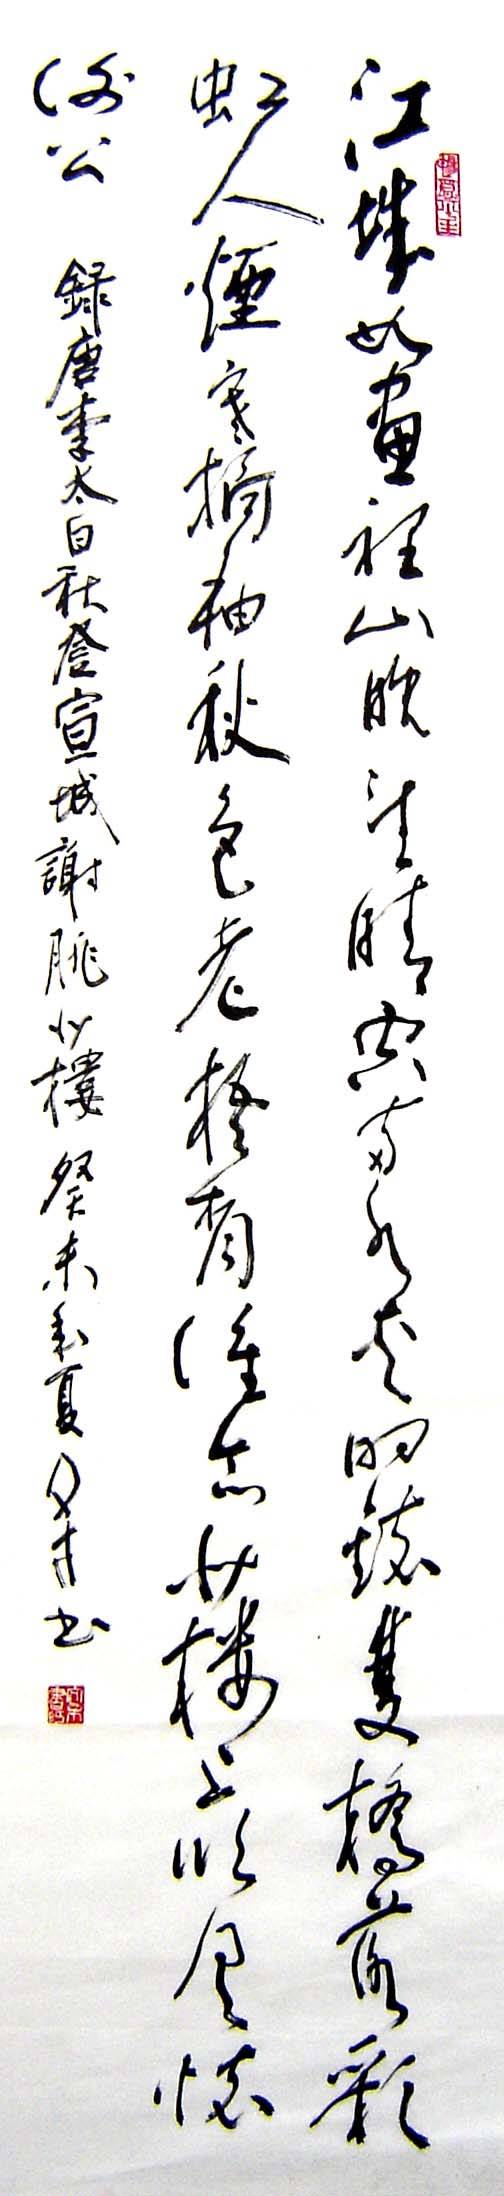 江城如畫裡山晚望晴空兩水夾明鏡隻橋落彩
虹人煙寒橘柚秋色老梧桐誰念北樓上臨風懷
謝公 錄唐李太白秋登宣城謝朓北樓 癸未夏書